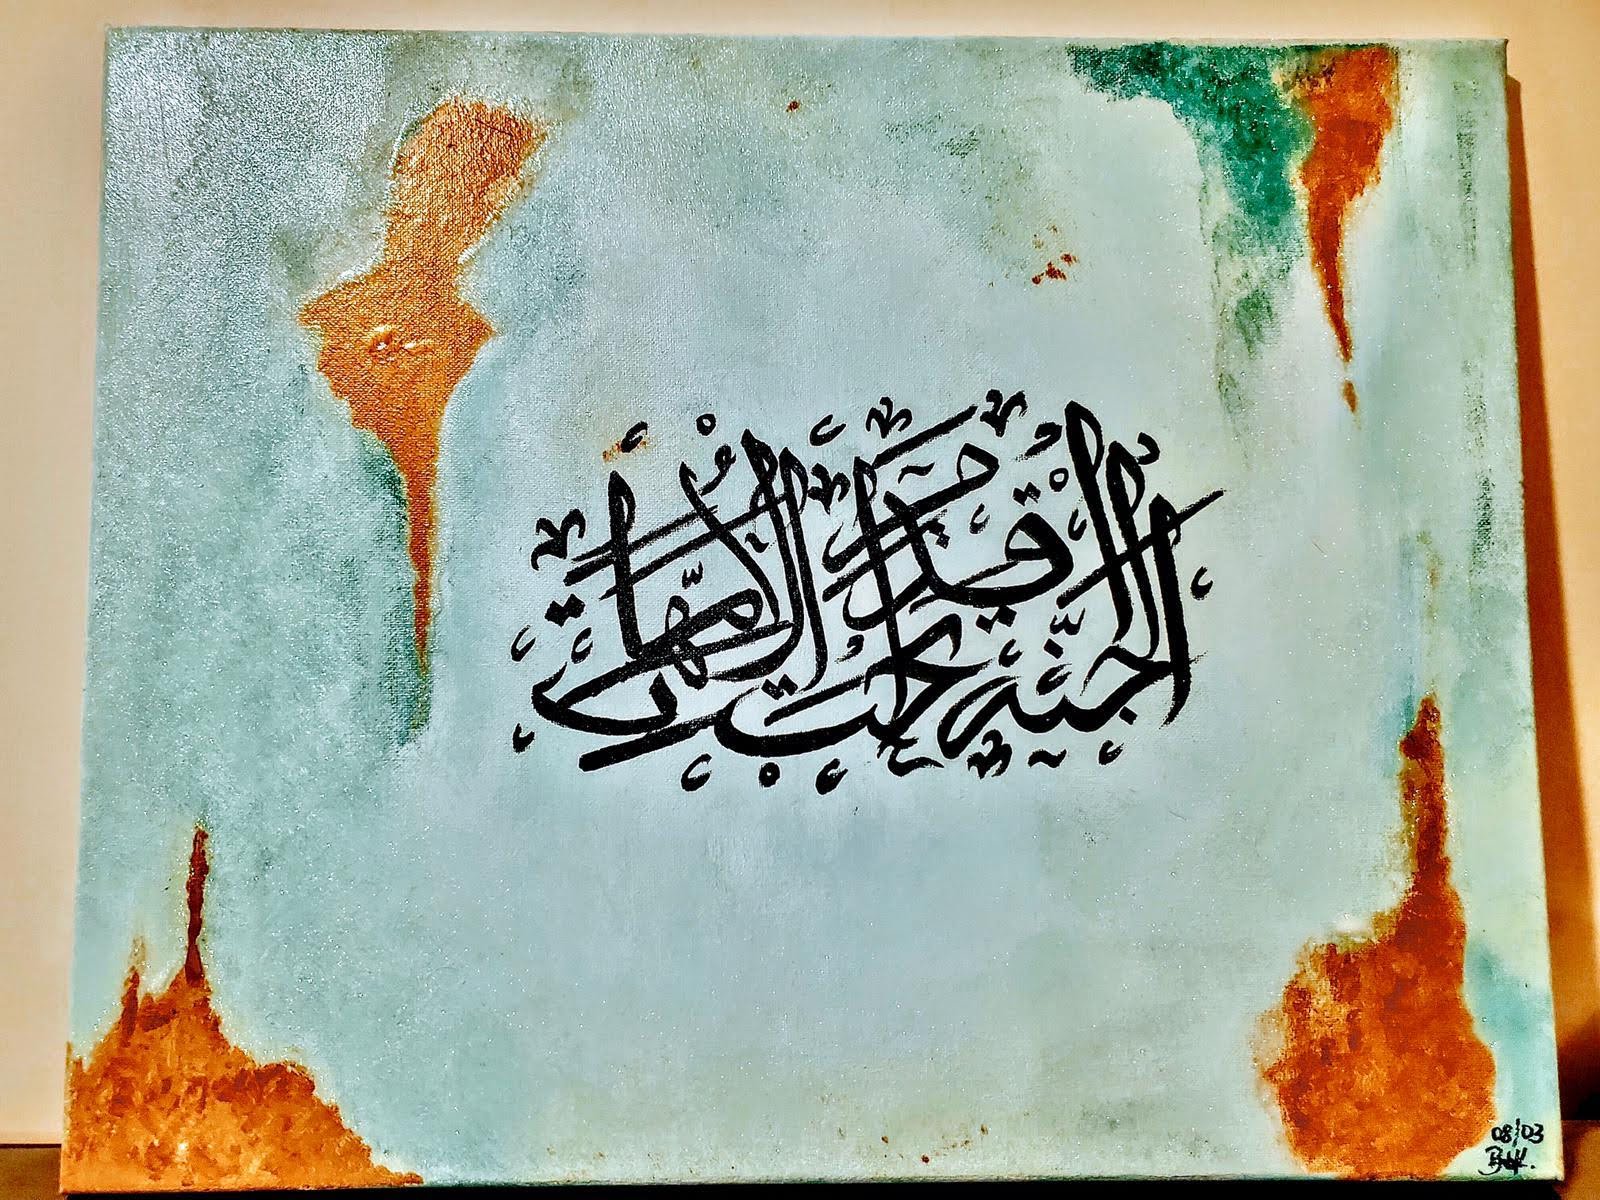 الجنّة تحت أقدام الأمّهات
08/03